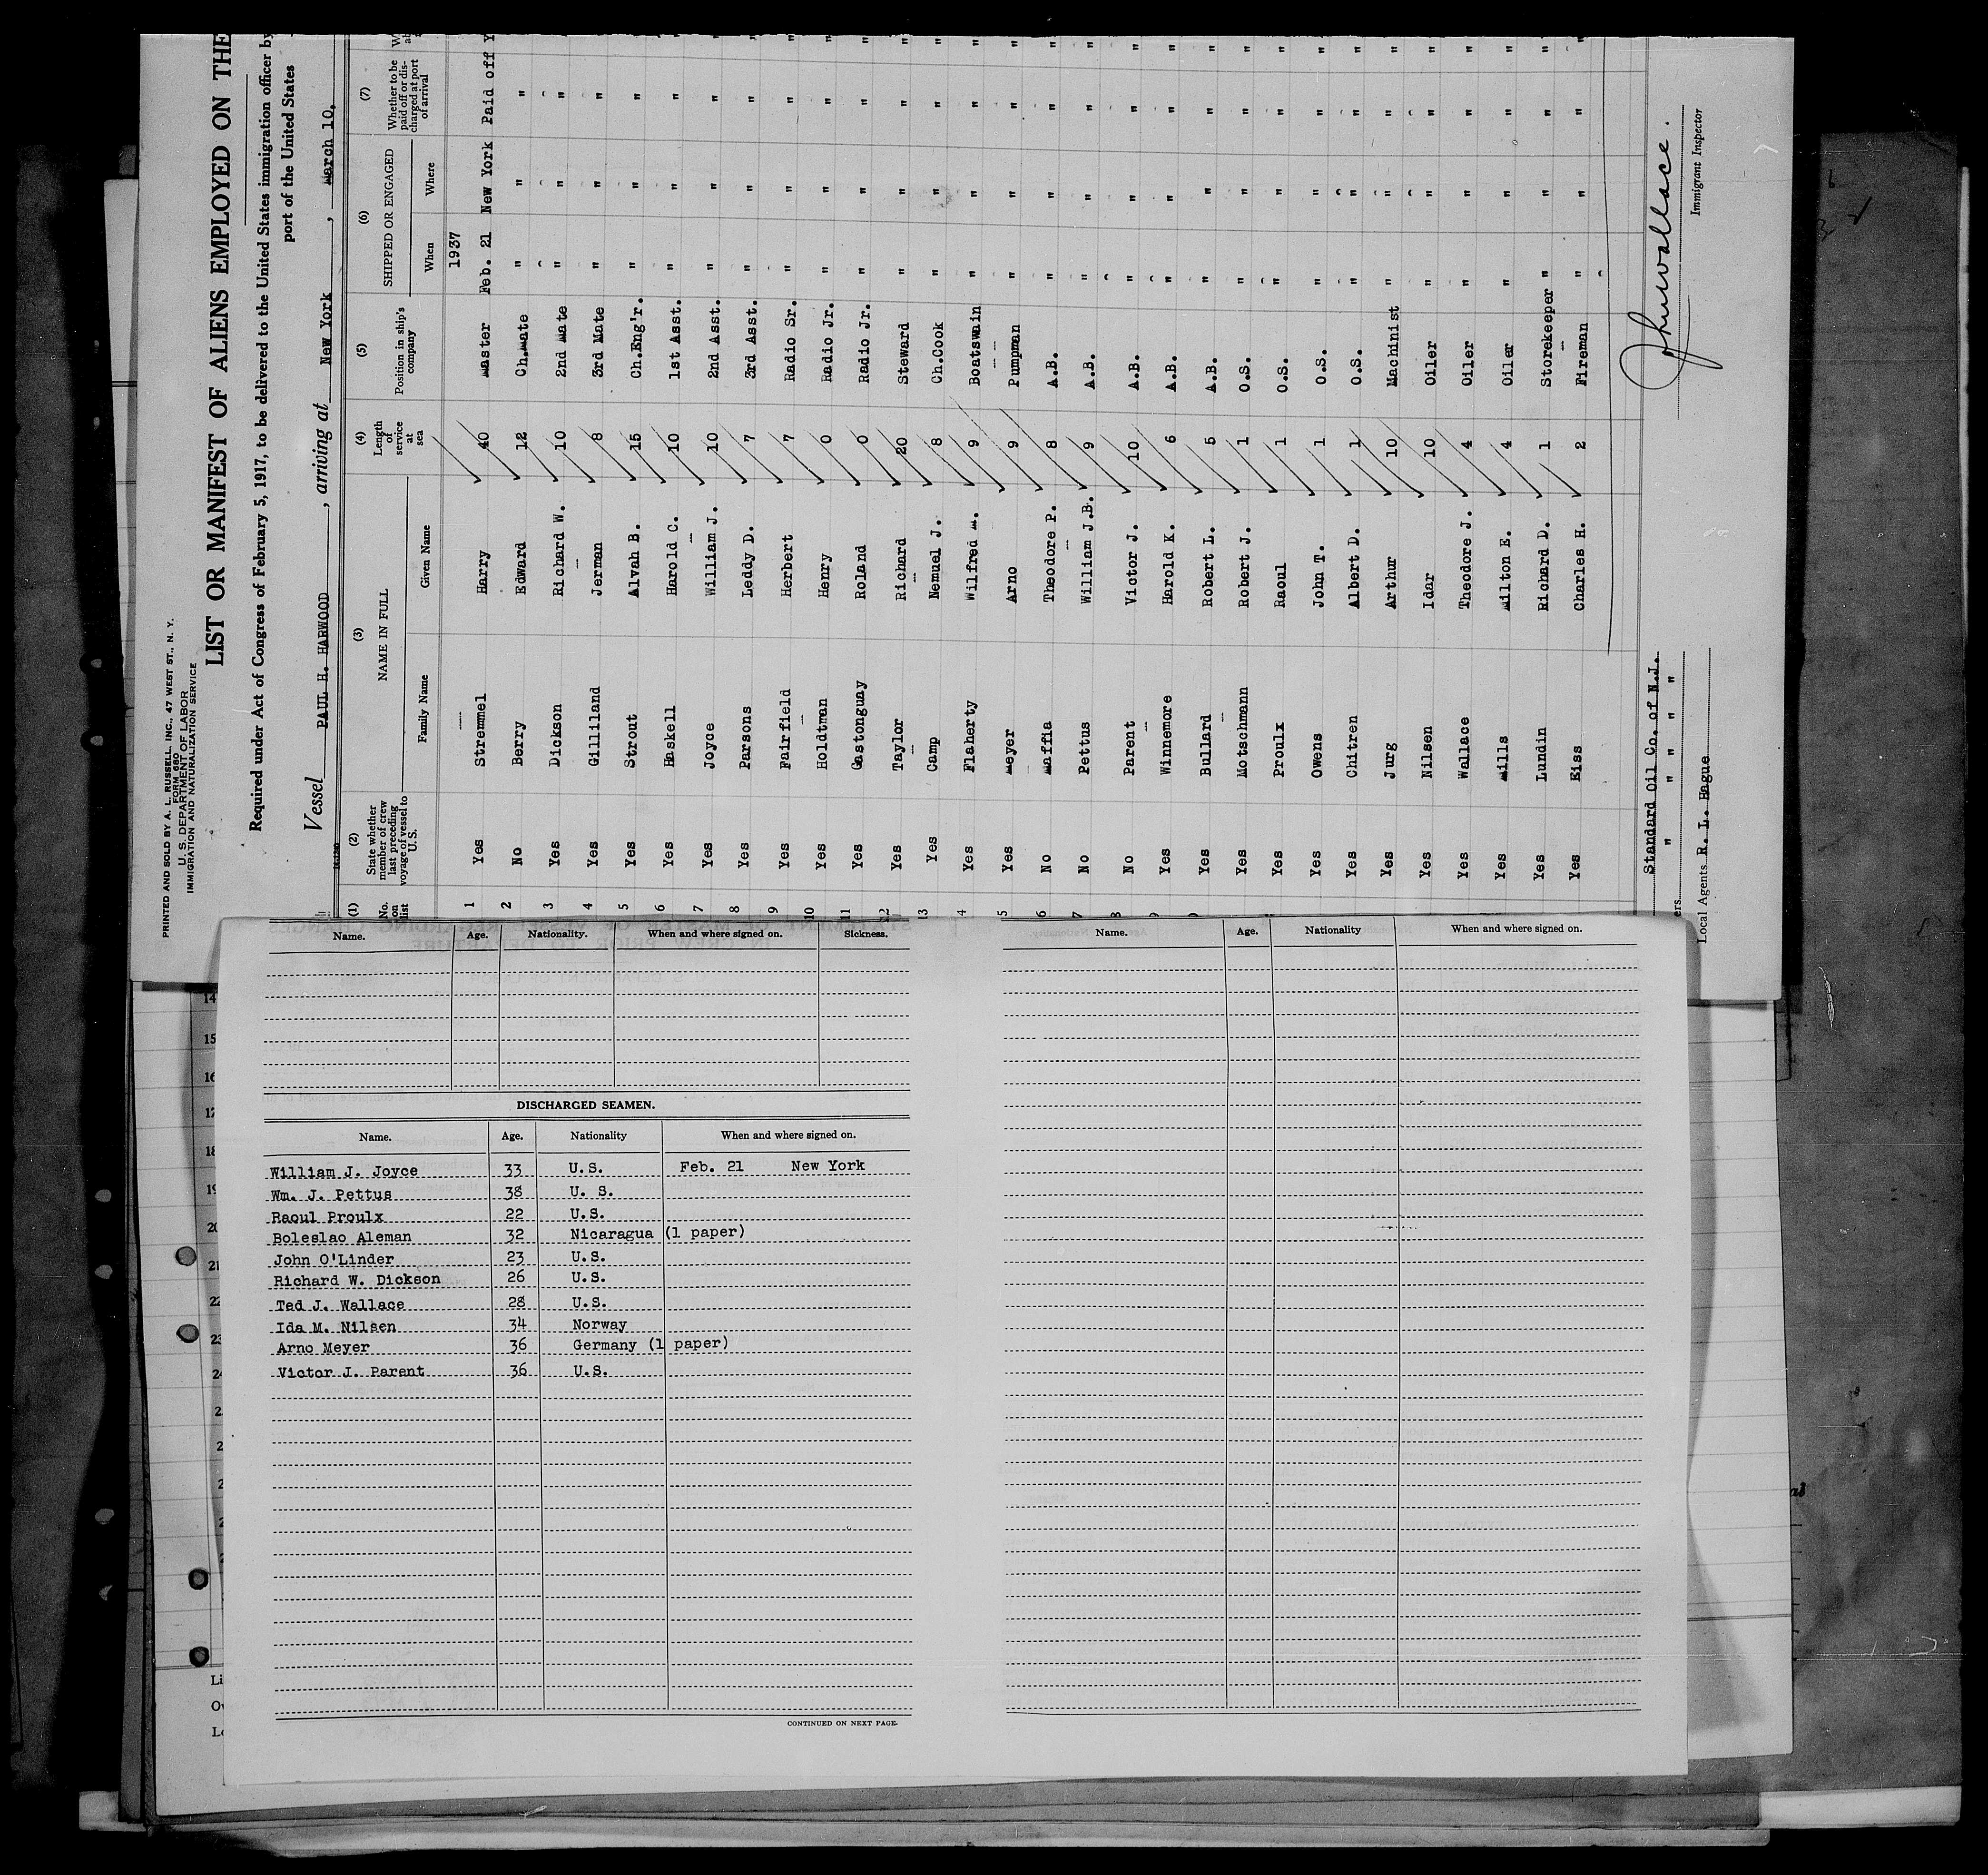 PRINTED AND SOLD BY A. L. RUSSELL, INC., 47 WEST ST., N. Y.
FORM 680
U. S. DEPARTMENT OF LABOR
IMMIGRATION AND NATURALIZATION SERVICE
LIST OR MANIFEST OF ALIENS EMPLOYED ON THE
Required under Act of Congress of February 5, 1917, to be delivered to the United States immigration officer by
port of the United States
Vessel PAUL H. HARWOOD, arriving at New York, March 10,
(1) (2) (3) (4) (5) (6) (7)
No. on list
State whether member of crew last preceding voyage of vessel to U. S.
NAME IN FULL
Family Name Given Name
Length of service at sea
Position in ship's company
SHIPPED OR ENGAGED
When Where
Whether to be paid off or discharged at port of arrival
1937
1 Yes Stremmel Harry 40 Master Feb. 21 New York Paid off Y
2 No Berry Edward 12 Ch.Mate " " " "
3 Yes Dickson Richard W. 10 2nd Mate " " " "
4 Yes Gilliland Jerman 8 3rd Mate " " " "
5 Yes Strout Alvah B. 15 Ch.Eng'r. " " " "
6 Yes Haskell Harold C. 10 1st Asst. " " " "
7 Yes Joyce William J. 10 2nd Asst. " " " "
8 Yes Parsons Leddy D. 7 3rd Asst. " " " "
9 Yes Fairfield Herbert 7 Radio Sr. " " " "
10 Yes Holdtman Henry 0 Radio Jr. " " " "
11 Yes Gastonguay Roland 0 Radio Jr. " " " "
12 Yes Taylor Richard 20 Steward " " " "
13 Yes Camp Nemuel J. 8 Ch.Cook " " " "
4 Yes Flaherty Wilfred M. 9 Boatswain " " " "
5 Yes Meyer Arno 9 Pumpman " " " "
6 No Maffia Theodore P. 8 A.B. " " " "
7 No Pettus William J.B. 9 A.B. " " " "
8 No Parent Victor J. 10 A.B. " " " "
9 Yes Winnemore Harold K. 6 A.B. " " " "
Yes Bullard Robert L. 5 A.B. " " " "
Yes Motschmann Robert J. 1 O.S. " " " "
Yes Proulx Raoul 1 O.S. " " " "
Yes Owens John T. 1 O.S. " " " "
Yes Chitren Albert D. 1 O.S. " " " "
Yes Jurg Arthur 10 Machinist " " " "
Yes Nilsen Idar 10 Oiler " " " "
Yes Wallace Theodore J. 4 Oiler " " " "
Yes Mills Milton E. 4 Oiler " " " "
Yes Lundin Richard D. 1 Storekeeper " " " "
Yes Eiss Charles H. 2 Fireman " " " "
Standard Oil Co. of N.J.
" " " " "
ers
Local Agents R. L. Hague
Immigrant Inspector
Name. Age. Nationality. When and where signed on. Sickness.
DISCHARGED SEAMEN.
Name. Age. Nationality When and where signed on.
William J. Joyce 33 U.S. Feb. 21 New York
Wm. J. Pettus 38 U. S.
Raoul Proulx 22 U.S.
Boleslao Aleman 32 Nicaragua (1 paper)
John O'Linder 23 U.S.
Richard W. Dickson 26 U.S.
Ted J. Wallace 28 U.S.
Ida M. Nilsen 34 Norway
Arno Meyer 36 Germany (1 paper)
Victor J. Parent 36 U.S.
CONTINUED ON NEXT PAGE.
Name. Age. Nationality When and where signed on.
14
15
16
17
18
19
20
21
22
23
24
2
2
2
Li
Ov
Lo